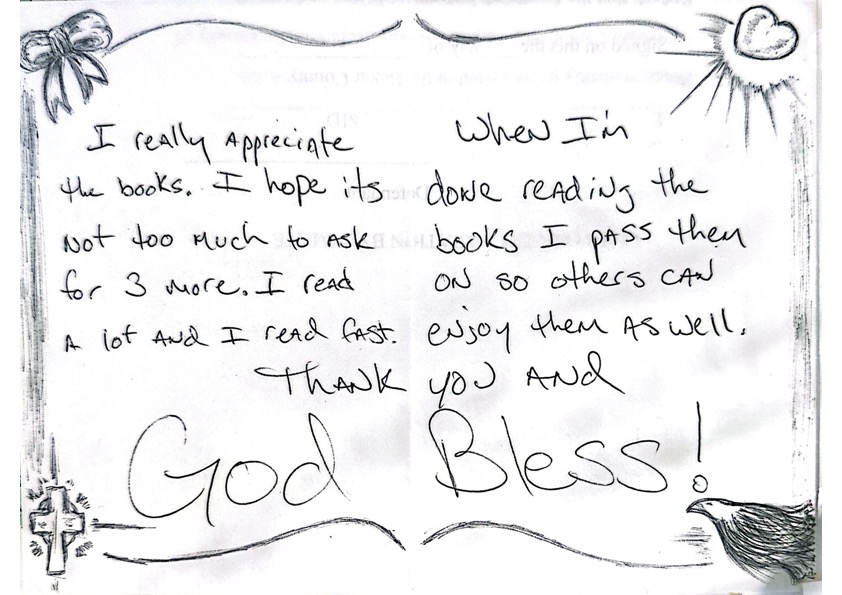 I really Appreciate
the books. I hope its
Not too Much to Ask
for 3 more. I read
A lot AND I read fast.
When I'm
done reading the
books I pass them
on so others can
enjoy them As well.
THANK you AND
God Bless!